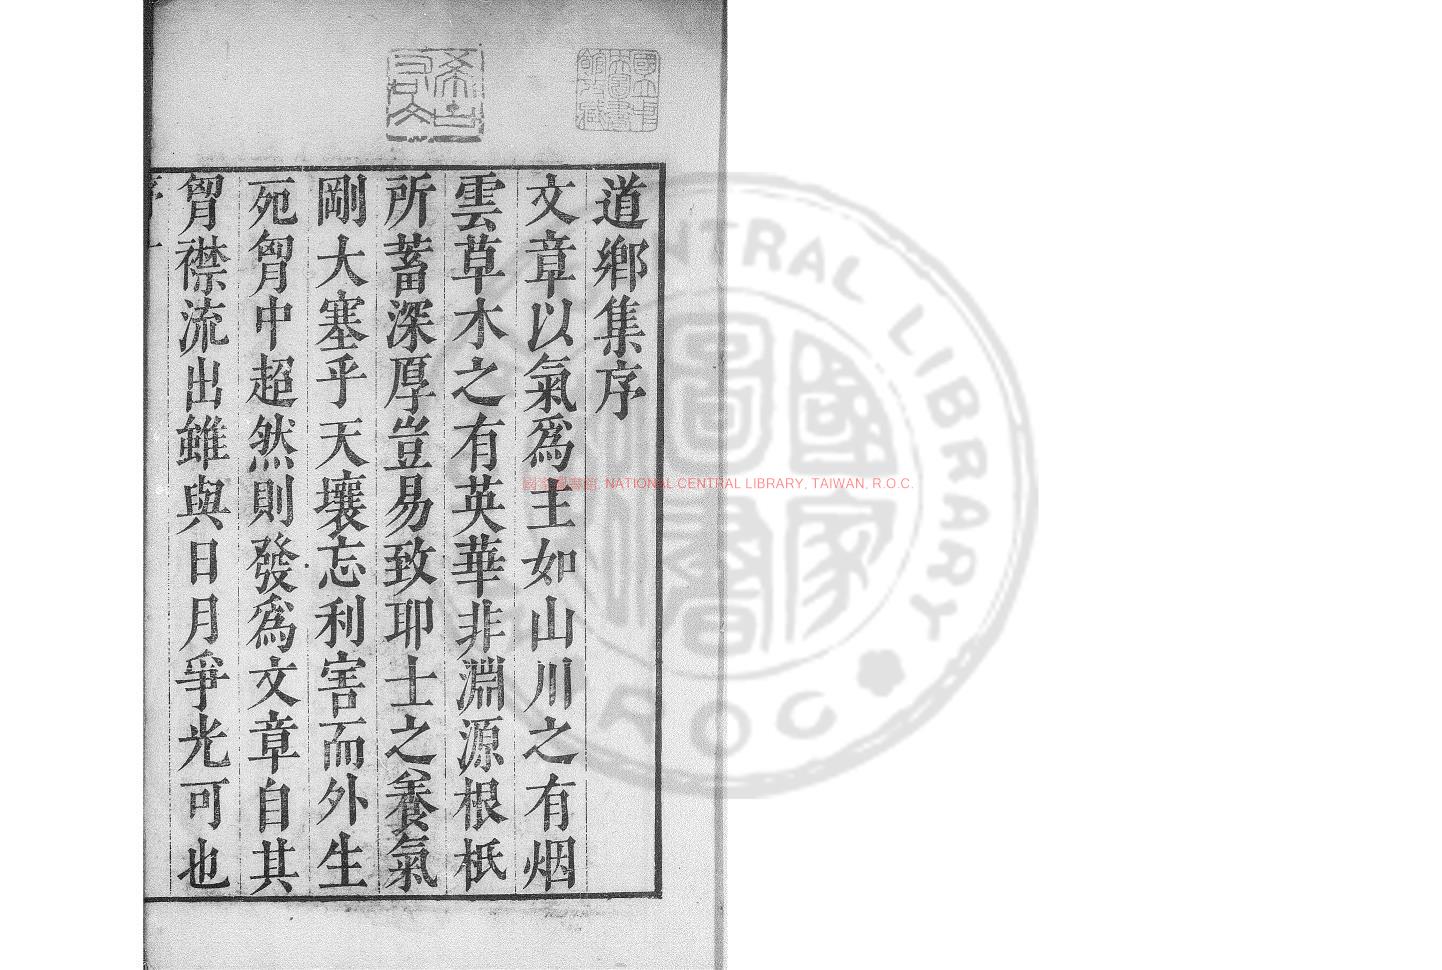 道鄉集序
文章以氣爲主如山川之有烟
雲草木之有英華非淵源根柢
所蓄深厚豈易致耶士之養氣
剛大塞乎天壤忘利害而外生
死胷中超然則發爲文章自其
胷襟流出雖與日月爭光可也
國立中央圖書館收藏
NATIONAL CENTRAL LIBRARY, TAIWAN, R.O.C.
CENTRAL LIBRARY
ROC
國家圖書